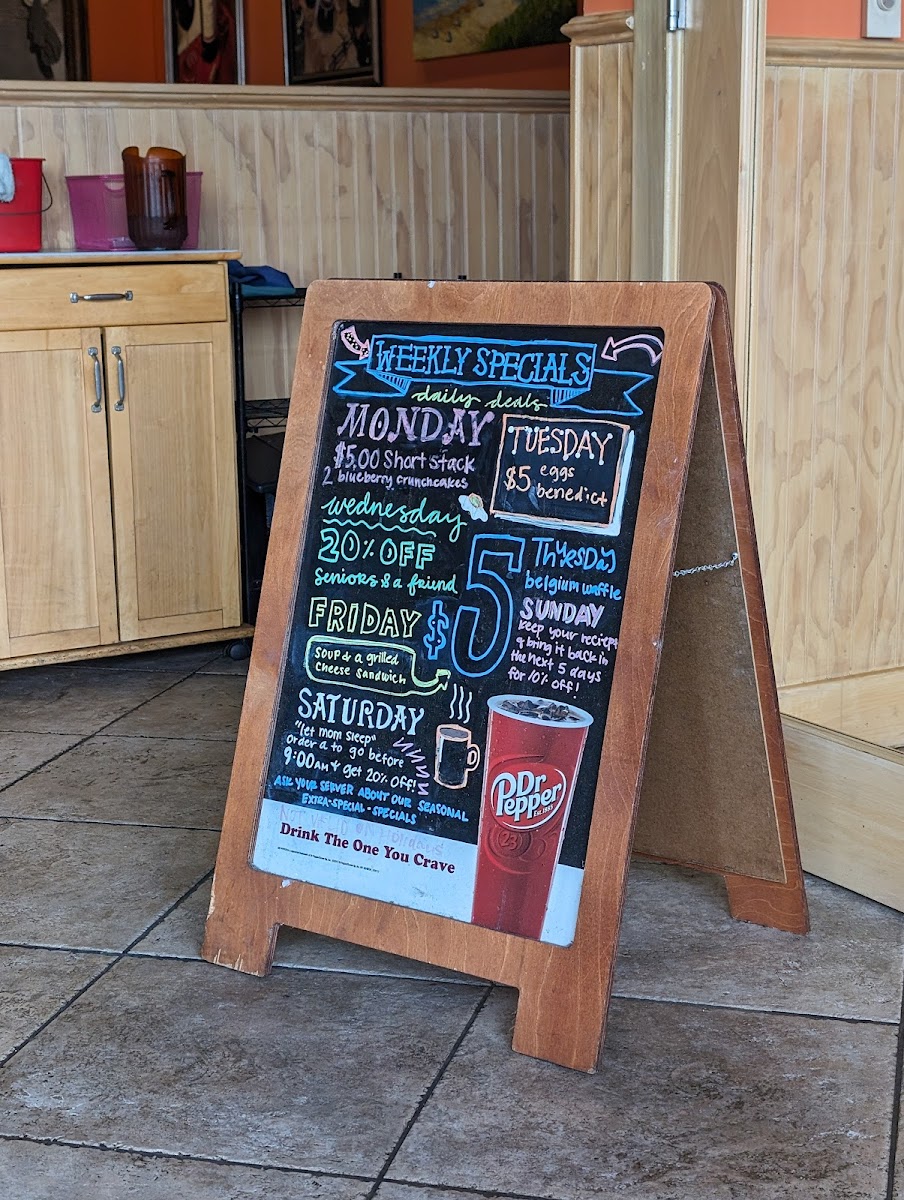 WEEKLY SPECIALS
daily deals
MONDAY
$5.00 Short stack
2 blueberry crunchcakes
TUESDAY
$5 eggs
benedict
wednesday
20% OFF
seniors & a friend
$5
ThuRsDay
belgium waffle
FRIDAY
SOUP & a grilled
cheese sandwich
SUNDAY
keep your reciept
& bring it back in
the next 5 days
for 10% off!
SATURDAY
"let mom sleep"
order a to go before
9:00AM & get 20% off!
ASK YOUR SERVER ABOUT OUR SEASONAL
EXTRA-SPECIAL-SPECIALS
NOT VALID ON HOLIDAYS
Drink The One You Crave
Dr
Pepper
Est. 1885
23